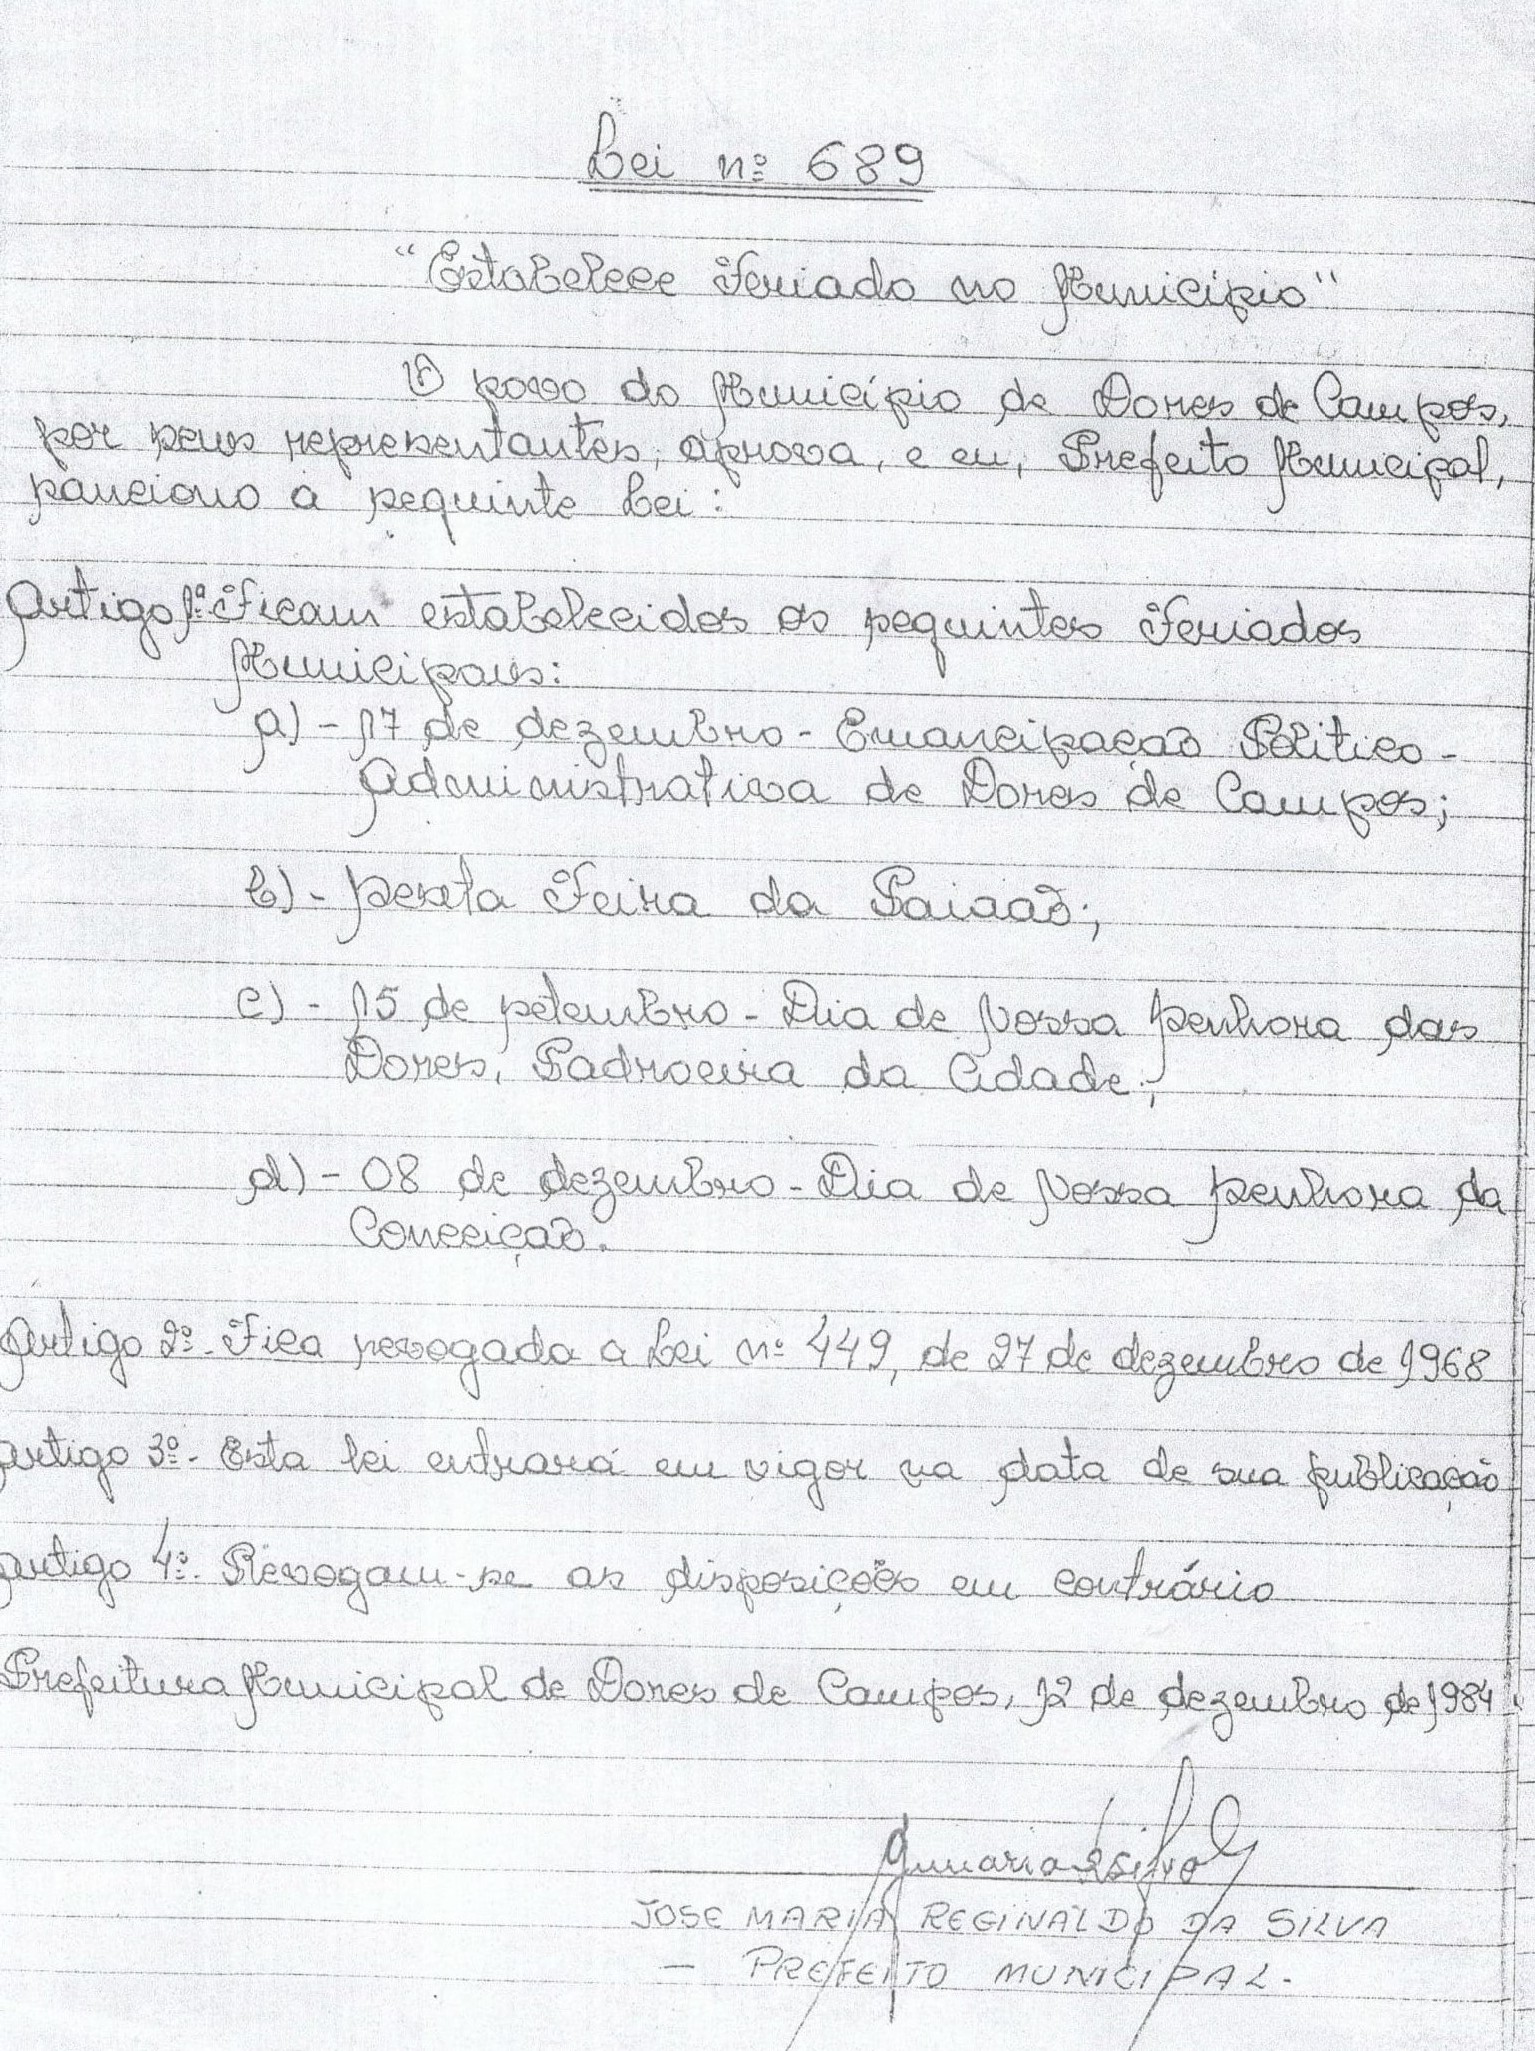 Lei nº 689
"Estabelece Feriado no Município"
O povo do Município de Dores de Campos,
por seus representantes, aprova, e eu, Prefeito Municipal,
sanciono a seguinte Lei:
Artigo 1º Ficam estabelecidos os seguintes Feriados
Municipais:
a) - 17 de dezembro - Emancipação Político -
Administrativa de Dores de Campos;
b) - Sexta Feira da Paixão;
c) - 15 de setembro - Dia de Nossa Senhora das
Dores, Padroeira da Cidade;
d) - 08 de dezembro - Dia de Nossa Senhora da
Conceição.
Artigo 2º - Fica revogada a Lei nº 449, de 27 de dezembro de 1968
Artigo 3º - Esta lei entrará em vigor na data de sua publicação
Artigo 4º - Revogam-se as disposições em contrário
Prefeitura Municipal de Dores de Campos, 12 de dezembro de 1984.
JOSE MARIA REGINALDO DA SILVA
- PREFEITO MUNICIPAL -